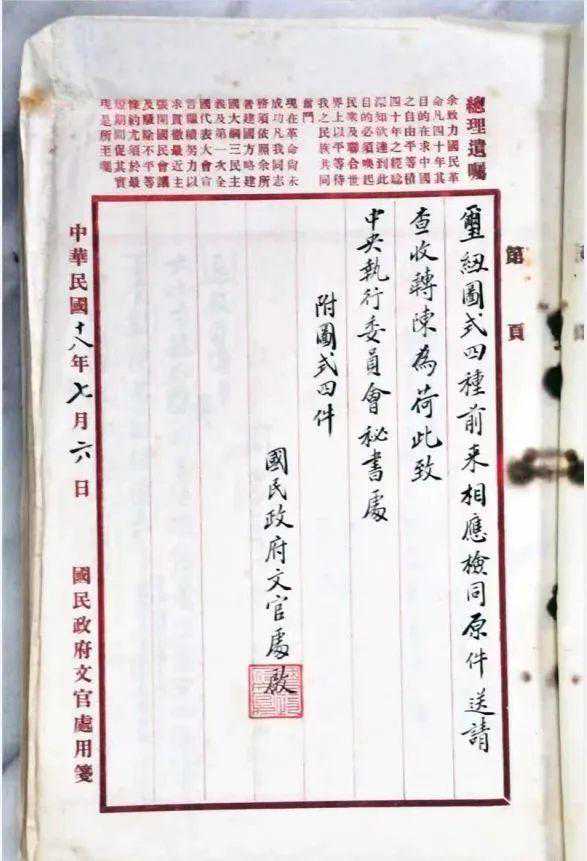 第 頁
總理遺囑
余致力國民革
命凡四十年其
目的在求中國
之自由平等積
四十年之經驗
深知欲達到此
目的必須喚起
民衆及聯合世
界上以平等待
我之民族共同
奮鬥
現在革命尚未
成功凡我同志
務須依照余所
著建國方略建
國大綱三民主
義及第一次全
國代表大會宣
言繼續努力以
求貫徹最近主
張開國民會議
及廢除不平等
條約尤須於最
短期間促其實
現是所至囑
璽紐圖式四種前來相應檢同原件送請
查收轉陳為荷此致
中央執行委員會秘書處
附圖式四件
國民政府文官處啟
中華民國十八年七月六日 國民政府文官處用箋